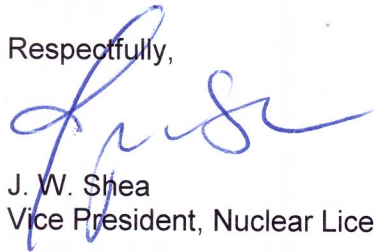 Respectfully,
J. W. Shea
Vice President, Nuclear Lice